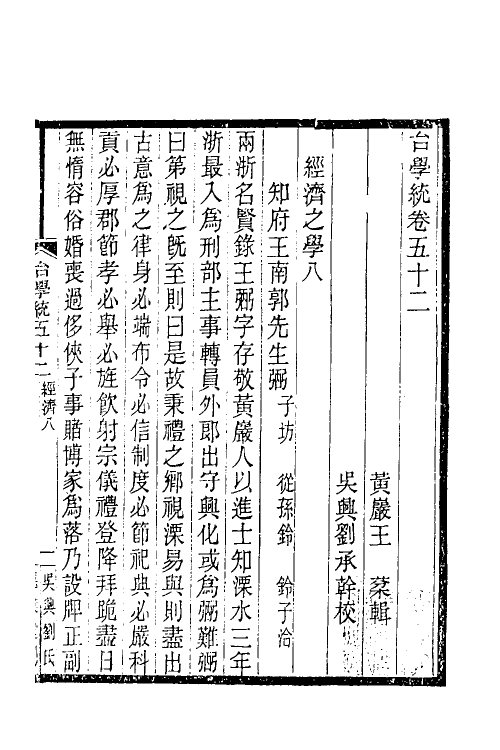 台學統卷五十二
黃巖王棻輯
吳興劉承幹校
經濟之學八
知府王南郭先生弼 子坊 從孫鈴 鈴子洽
兩浙名賢錄王弼字存敬黃巖人以進士知溧水三年
浙最入爲刑部主事轉員外郎出守興化或爲弼難弼
曰第視之旣至則曰是故秉禮之鄉視溧易與則盡出
古意爲之律身必端布令必信制度必節祀典必嚴科
貢必厚郡節孝必舉必旌飮射宗儀禮登降拜跪盡日
無惰容俗婚喪過侈俠子事賭博家爲落乃設牌正副
台學統五十二 經濟八
一 吳興劉氏